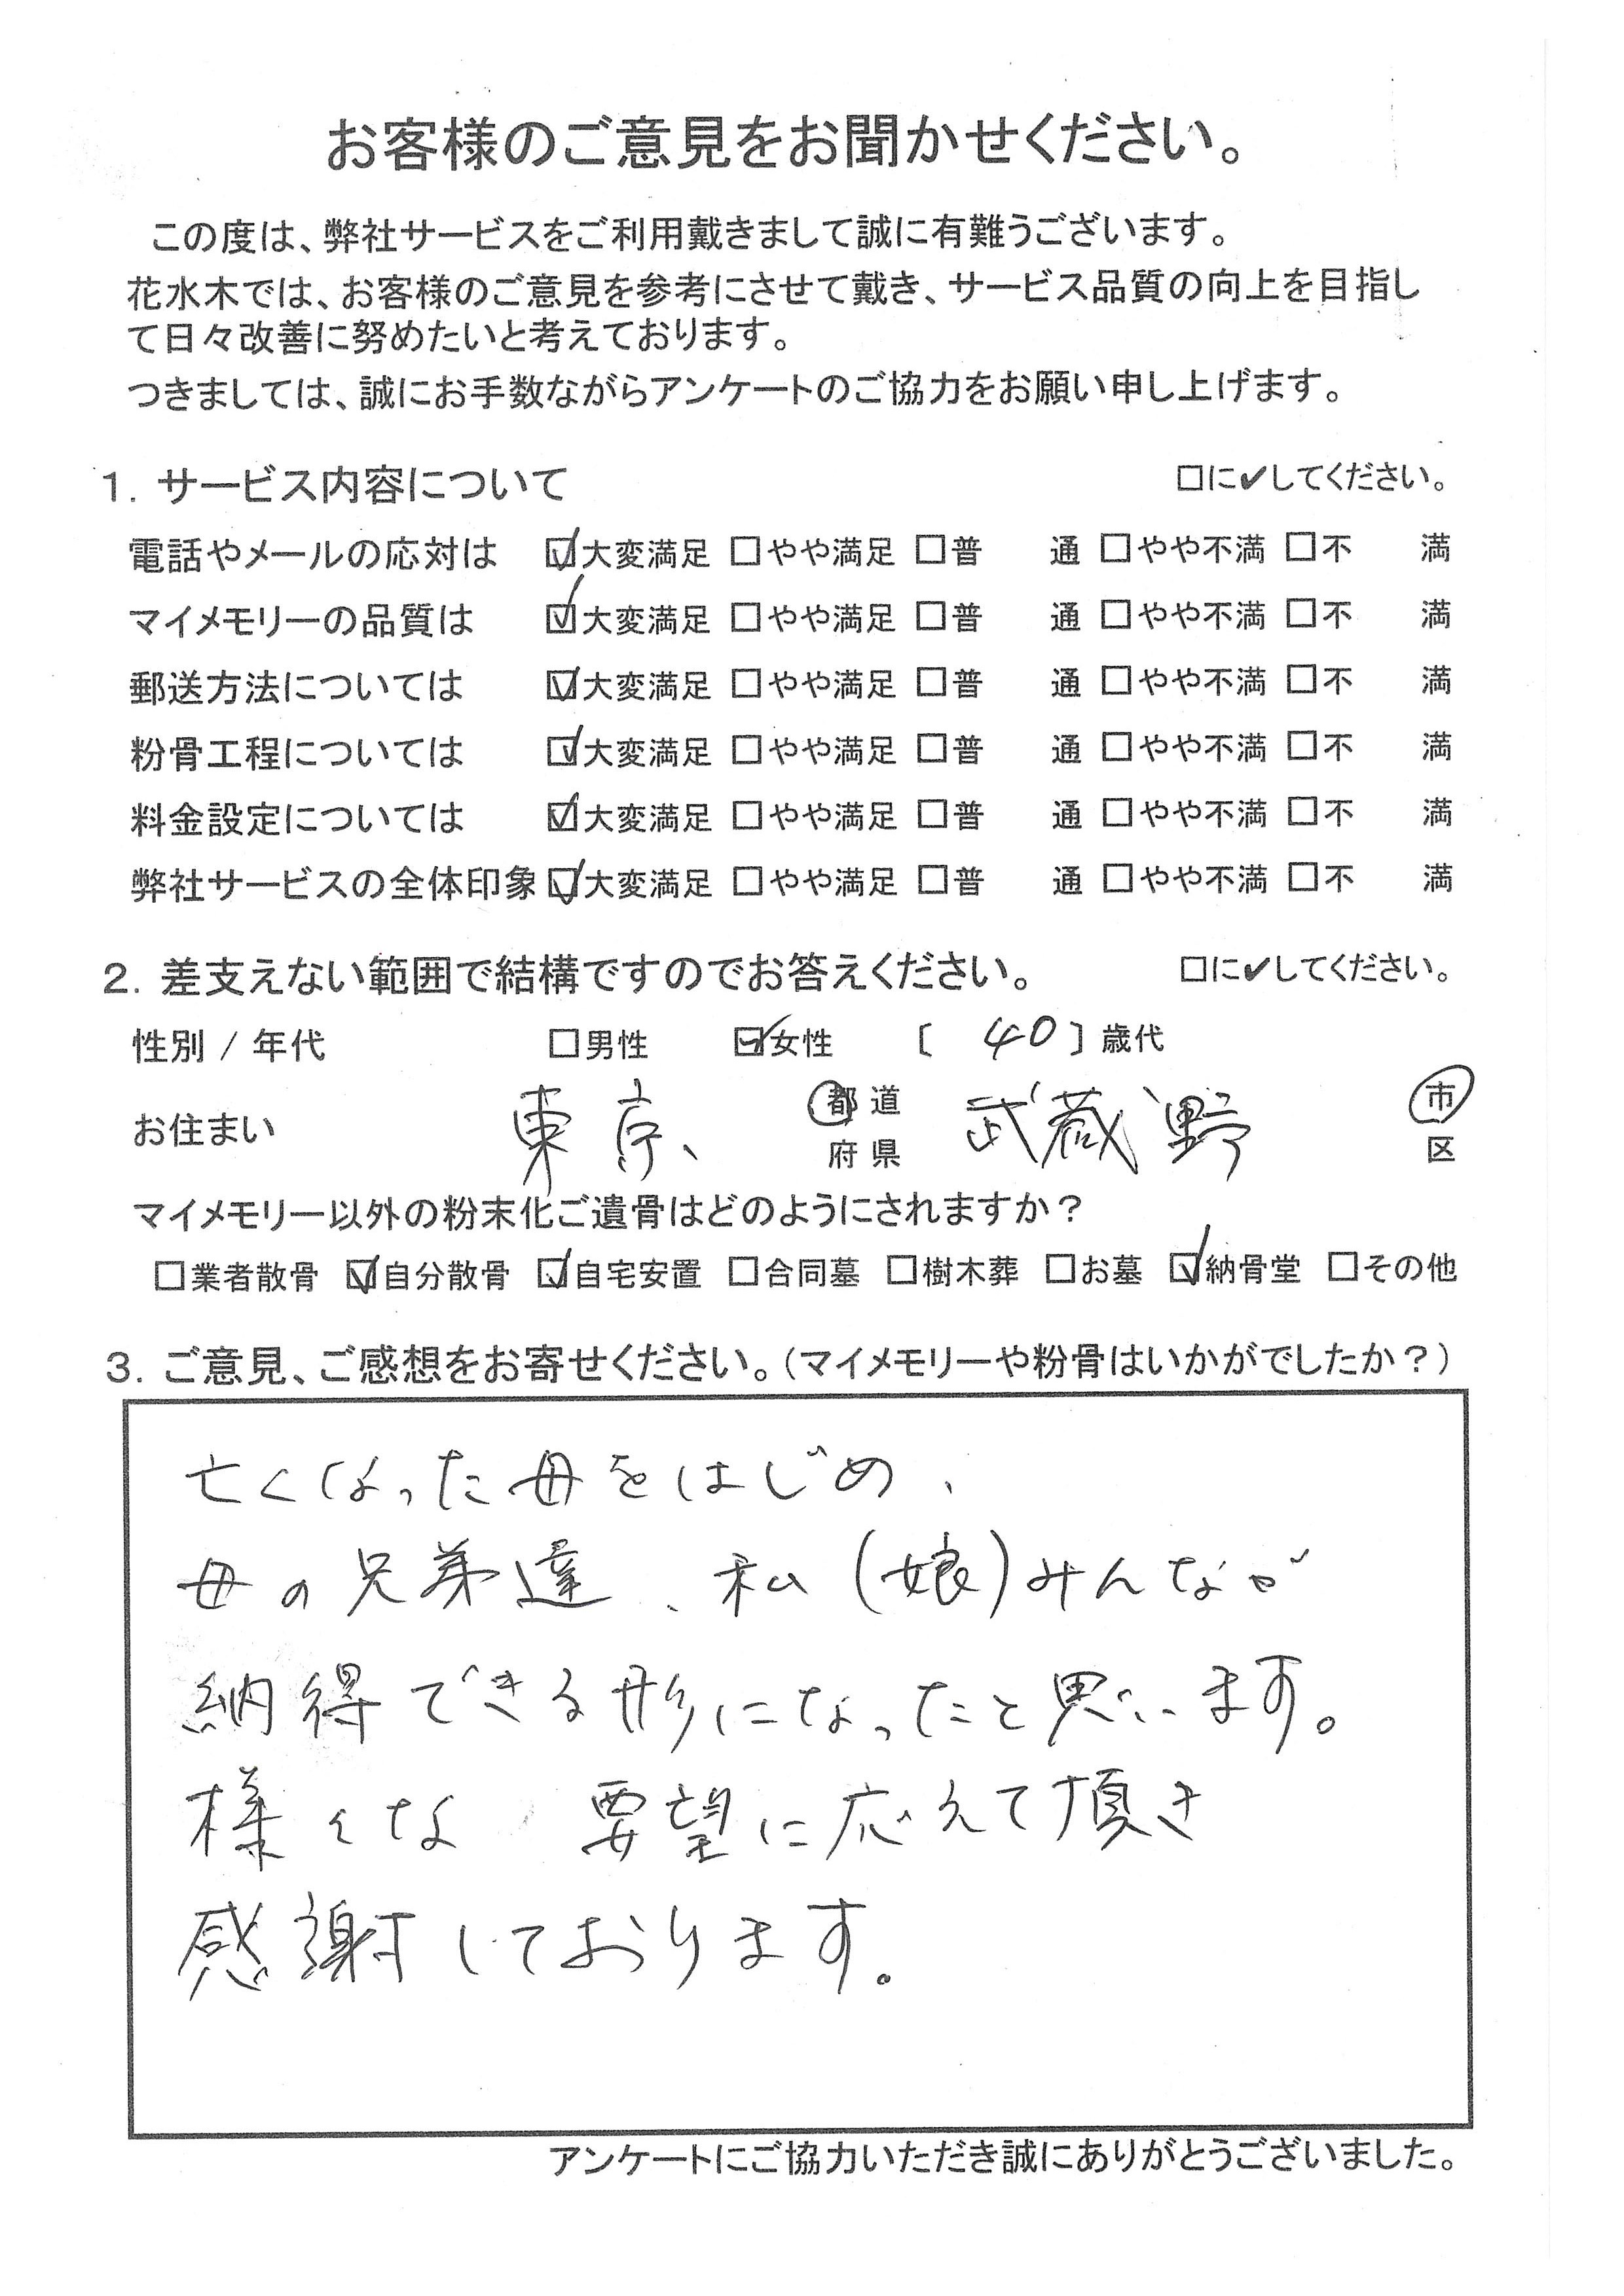 お客様のご意見をお聞かせください。
この度は、弊社サービスをご利用戴きまして誠に有難うございます。
花水木では、お客様のご意見を参考にさせて戴き、サービス品質の向上を目指し
て日々改善に努めたいと考えております。
つきましては、誠にお手数ながらアンケートのご協力をお願い申し上げます。
1. サービス内容について □に✔してください。
電話やメールの応対は ☑大変満足 □やや満足 □普 通 □やや不満 □不 満
マイメモリーの品質は ☑大変満足 □やや満足 □普 通 □やや不満 □不 満
郵送方法については ☑大変満足 □やや満足 □普 通 □やや不満 □不 満
粉骨工程については ☑大変満足 □やや満足 □普 通 □やや不満 □不 満
料金設定については ☑大変満足 □やや満足 □普 通 □やや不満 □不 満
弊社サービスの全体印象 ☑大変満足 □やや満足 □普 通 □やや不満 □不 満
2. 差支えない範囲で結構ですのでお答えください。 □に✔してください。
性別 / 年代 □男性 ☑女性 〔 40 〕歳代
お住まい 東京、 都道府県 武蔵野 市区
マイメモリー以外の粉末化ご遺骨はどのようにされますか？
□業者散骨 ☑自分散骨 ☑自宅安置 □合同墓 □樹木葬 □お墓 ☑納骨堂 □その他
3. ご意見、ご感想をお寄せください。（マイメモリーや粉骨はいかがでしたか？）
亡くなった母をはじめ、
母の兄弟達、私（娘）みんなが
納得できる形になったと思います。
様々な 要望に応えて頂き
感謝しております。
アンケートにご協力いただき誠にありがとうございました。